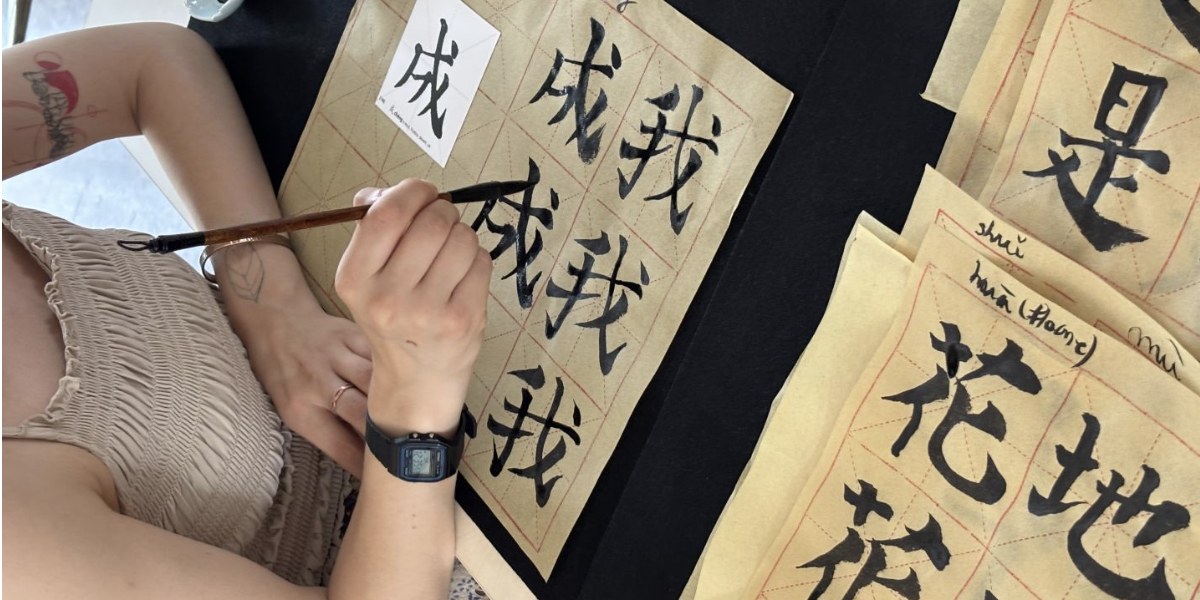 成
成 我
成 我
我
是
shuǐ
mù
花 地
花